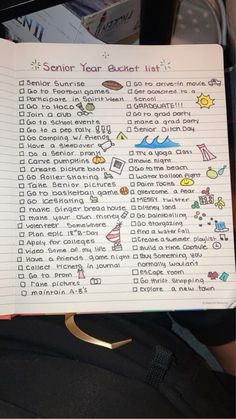 Senior Year Bucket list
Senior Sunrise
Go to Football games
Participate in Spirit week
Go to Hoco
Join a club
Go to school events
Go to a pep rally
Go Camping w/ friends
Have a sleepover
Do a senior prank
Carve pumpkins
Create picture book
Go Roller skating
Take Senior pictures
Go to basketball game
Go iceskating
make Ginger bread house
make your own money
volunteer somewhere
Plan epic 18th B-Day
Apply for colleges
Video Some of my life
Have a friends game night
Collect tickets in journal
Go to Prom
Take pictures
maintain A-B's
Go to drive-in movie
Get accepted to a
school
GRADUATE!!!
Go to grad party
make a grad party
Senior Ditch Day
Try a yoga Class
Movie night
Go to the beach
Water balloon fight
Paint Faces
overcome a fear
MESSY twister
Disney land
Go paintballing
Go Stargazing
Find a water fall
Create a summer playlist
Build a time Capsule
Buy Something you
normally wouldn't
Escape room
Go thrift Shopping
explore a new town